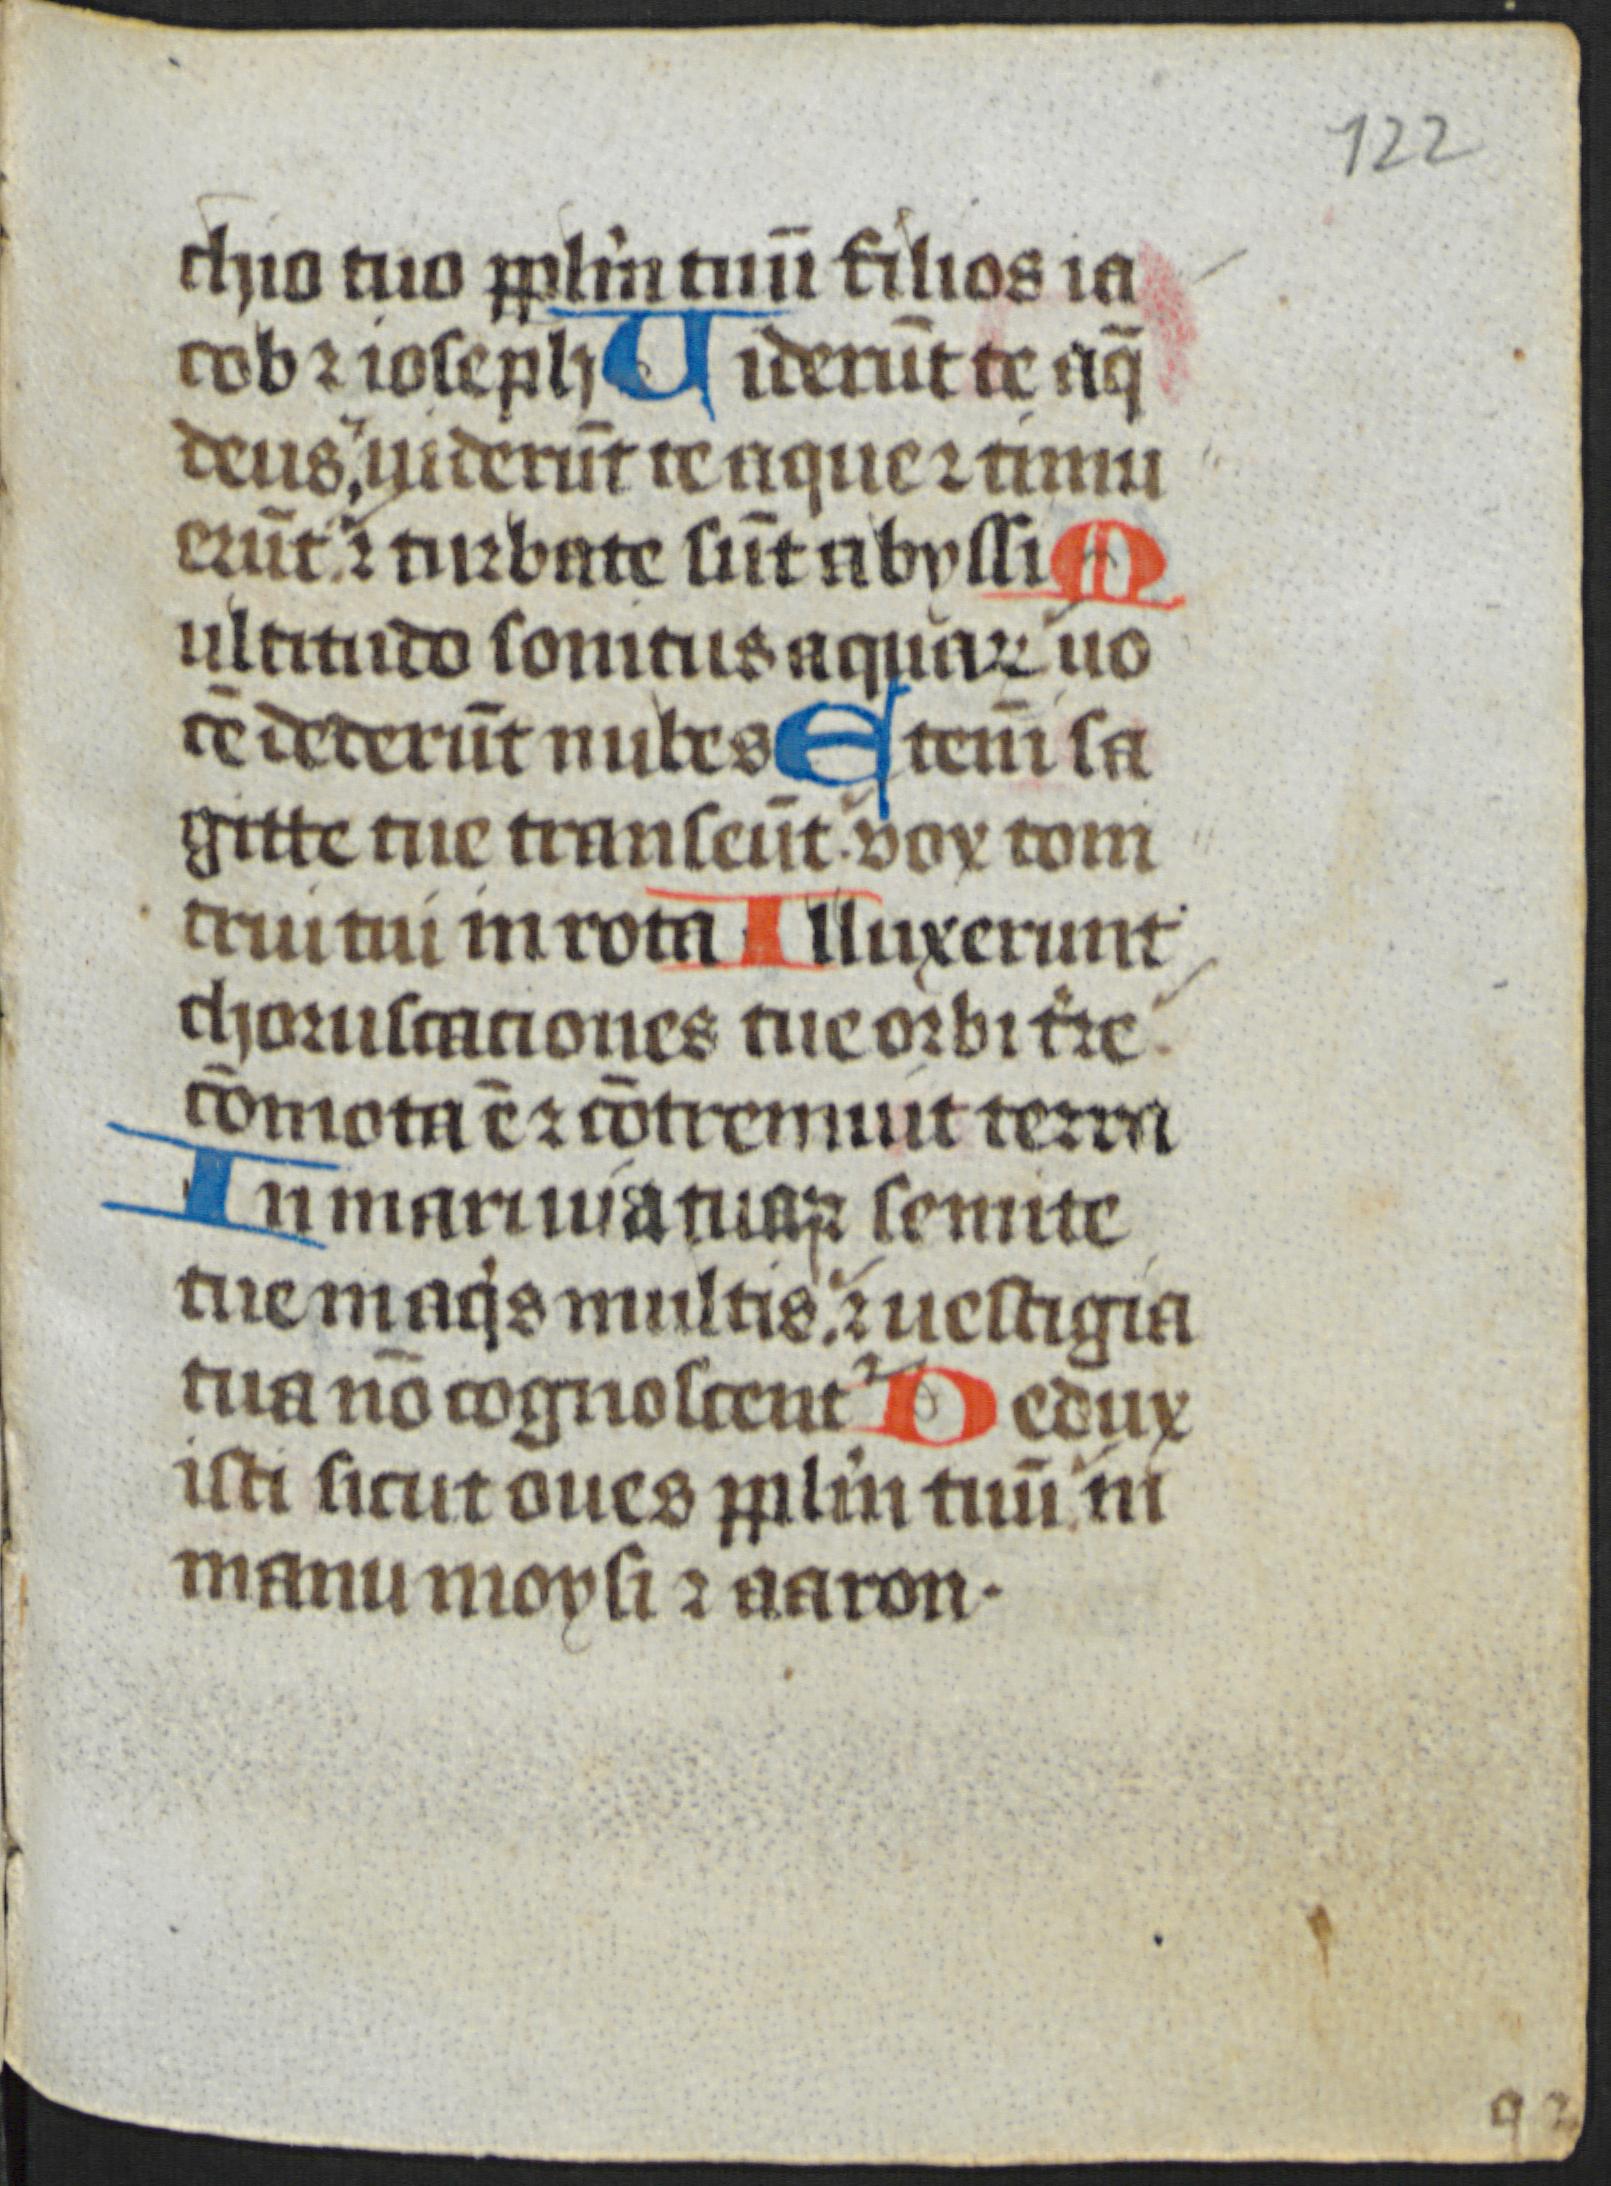 122
chio tuo pplm̄ tuū filios ia
cob ⁊ ioseph Uiderūt te aq̄
deus, uiderūt te aque ⁊ timu
erūt. ⁊ turbate sūt abyssi M
ultitudo sonitus aquaꝝ uo
cē dederūt nubes Eteni̅ sa
gitte tue transeūt. vox toni
trui tui in rota Illuxerunt
choruscaciones tue orbi tr̄e
cōmota ē ⁊ cōtremuit terra
In mari uia tua ⁊ semite
tue in aqͥs multis. ⁊ uestigia
tua nō cognoscent᷑ Dedux
isti sicut oues pplm̄ tuū in
manu moysi ⁊ aaron.
q 2